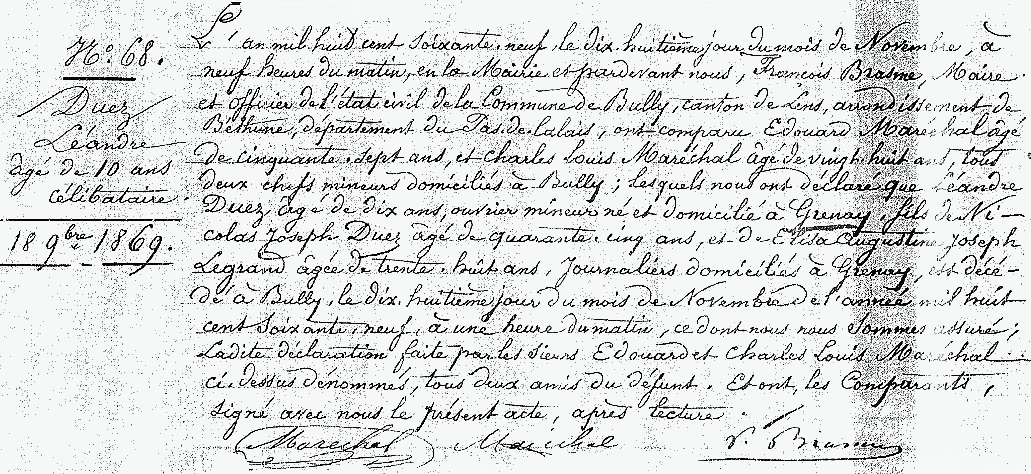 No. 68.
Duez
Léandre
âgé de 10 ans
célibataire
18 9bre 1869.
L'an mil huit cent soixante-neuf, le dix huitième jour du mois de Novembre, à
neuf heures du matin, en la Mairie et pardevant nous, François Brasme, Maire
et officier de l'état civil de la Commune de Bully, canton de Lens, arrondissement de
Béthune, département du Pas-de-Calais, ont comparu Edouard Maréchal âgé
de cinquante-sept ans, et Charles Louis Maréchal âgé de vingt-huit ans, tous
deux chefs mineurs domiciliés à Bully; lesquels nous ont déclaré que Léandre
Duez âgé de dix ans, ouvrier mineur né et domicilié à Grenay, fils de Ni-
colas Joseph Duez âgé de quarante-cinq ans, et de Elisa Augustine Joseph
Legrand âgée de trente-huit ans, Journaliers domiciliés à Grenay, est décé-
dé à Bully, le dix-huitième jour du mois de Novembre de l'année mil huit
cent soixante-neuf, à une heure du matin, ce dont nous nous sommes assuré;
Ladite déclaration faite par les sieurs Edouard et Charles Louis Maréchal
ci-dessus dénommés, tous deux amis du défunt. Et ont, les Comparants,
signé avec nous le présent acte, après lecture.
Maréchal Maréchal F. Brasme